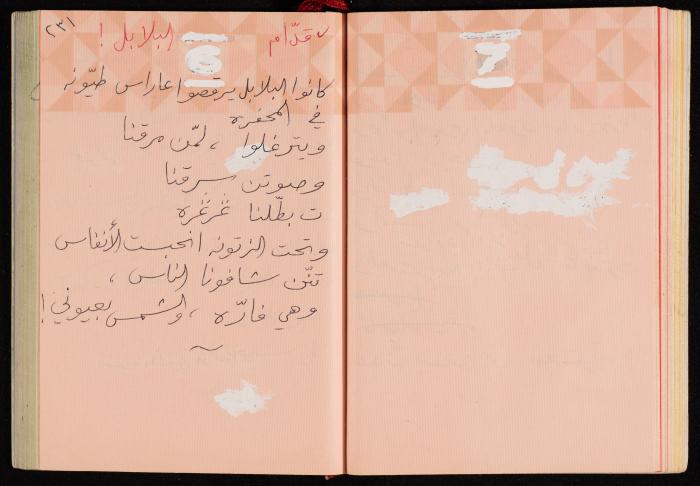 ٢٣١
قدّام البلابل !
6
كانوا البلابل يرقصوا عاراس طيّونه
في المحفره
ويترغلوا ، لمّن مرقنا
وصوتن سرقنا
ت بطّلنا غرغره
وتحت الزتونه انحبست الأنفاس
تنّن شافونا الناس ،
وهي فارّه ، والشمس بعيوني !
7